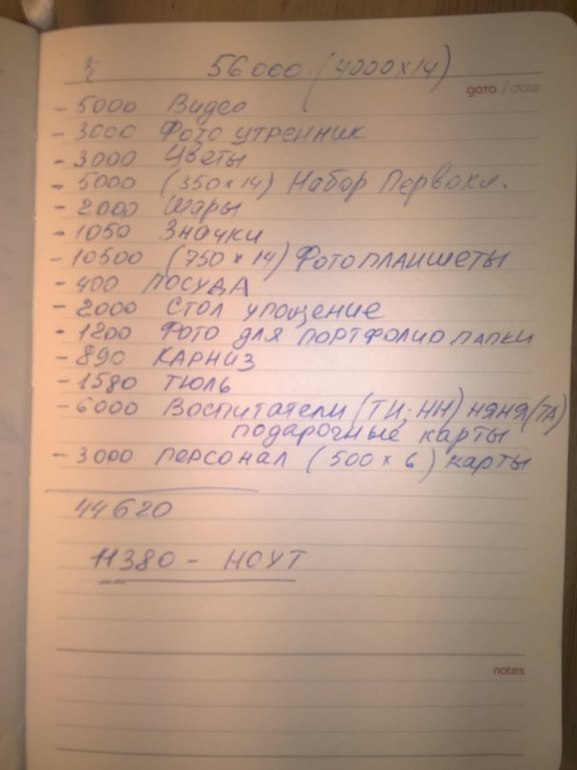 56000 (4000×14)
дата / date
- 5000 Видео
- 3000 Фото утренник
- 3000 Цветы
- 5000 (350×14) Набор Первокл.
- 2000 Шары
- 1050 Значки
- 10500 (750×14) Фотопланшеты
- 400 посуда
- 2000 Стол угощение
- 1200 Фото для портфолио папки
- 890 карниз
- 1580 тюль
- 6000 Воспитатели (ТИ; НН) няня (ТА)
подарочные карты
- 3000 персонал (500×6) карты
44620
11380 - НОУТ
notes